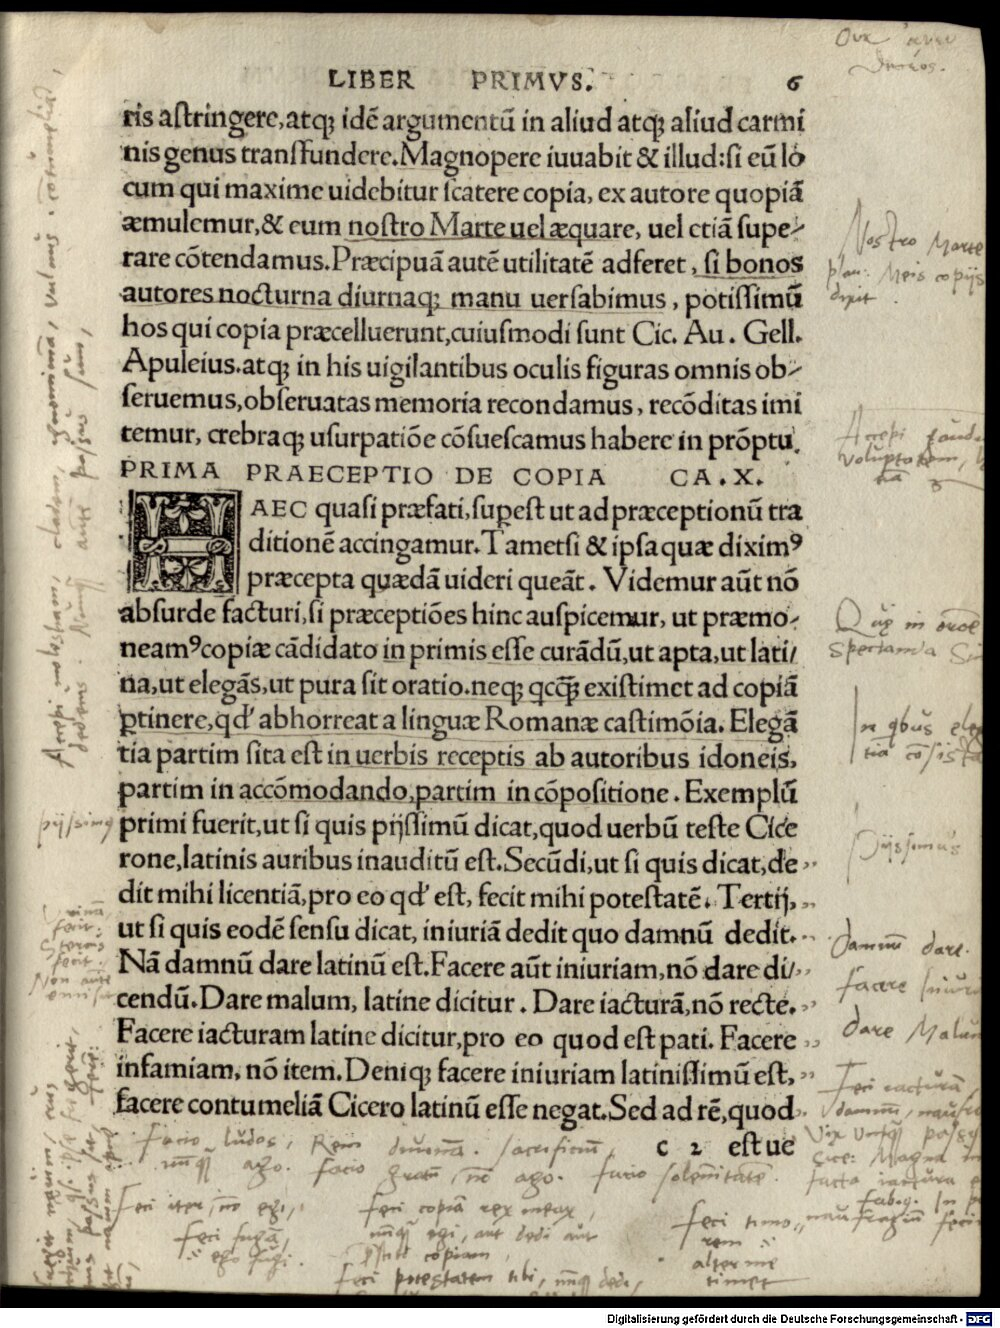 LIBER PRIMVS. 6
ris astringere,atq; idē argumentū in aliud atq; aliud carmi
nis genus transfundere.Magnopere iuuabit & illud:si eū lo
cum qui maxime uidebitur scatere copia, ex autore quopiā
æmulemur,& eum nostro Marte uel æquare, uel etiā supe-
rare cōtendamus.Præcipuā autē utilitatē adferet, si bonos
autores nocturna diurnaq; manu uersabimus, potissimū
hos qui copia præcelluerunt,cuiusmodi sunt Cic. Au. Gell.
Apuleius.atq; in his uigilantibus oculis figuras omnis ob-
seruemus,obseruatas memoria recondamus, recōditas imi
temur, crebraq; usurpatiōe cōsuescamus habere in prōptu.
PRIMA PRAECEPTIO DE COPIA CA.X.
HAEC quasi præfati,sup̱est ut ad præceptionū tra
ditionē accingamur.Tametsi & ipsa quæ diximꝰ
præcepta quædā uideri queāt. Videmur aūt nō
absurde facturi,si præceptiōes hinc auspicemur, ut præmo-
neamꝰ copiæ cādidato in primis esse curādū,ut apta,ut lati/
na,ut elegās,ut pura sit oratio.neq; qcq̄ existimet ad copiā
ꝑtinere,qd' abhorret a linguæ Romanæ castimōia. Elegā
tia partim sita est in uerbis receptis ab autoribus idoneis,
partim in accōmodando,partim in cōpositione. Exemplū
primi fuerit,ut si quis pijssimū dicat,quod uerbū teste Cice
rone,latinis auribus inauditū est.Secūdi,ut si quis dicat,de
dit mihi licentiā,pro eo qd' est, fecit mihi potestatē. Tertij,
ut si quis eodē sensu dicat, iniuriā dedit quo damnū dedit.
Nā damnū dare latinū est.Facere aūt iniuriam,nō dare di/
cendū.Dare malum, latine dicitur. Dare iacturā,nō recte.
Facere iacturam latine dicitur,pro eo quod est pati. Facere
infamiam, nō item.Deniq; facere iniuriam latinissimū est,
facere contumeliā Cicero latinū esse negat.Sed ad rē,quod
c 2 est ue
Nostro Marte
Meis copijs
dixit
Accepi
voluptatem,
Spectanda
In qbus
tia cōsista
Pijssimus
pijssimꝰ
Damnū dare.
facere Iniur
dare Malum
Feci iacturā,
Facio ludos, Rem divinā. sacrificiū,
nūqȝ ago. facio gratū, nō ago. facio solemnitatē.
Feci iter, nō egi,
Feci fugā,
ego fugi.
Feci copiā
nūqȝ egi, aut dedi aut
copiam
Feci potestatem tibi, nūqȝ dedi,
feci timo
rem
alter me
timet
Digitalisierung gefördert durch die Deutsche Forschungsgemeinschaft - DFG